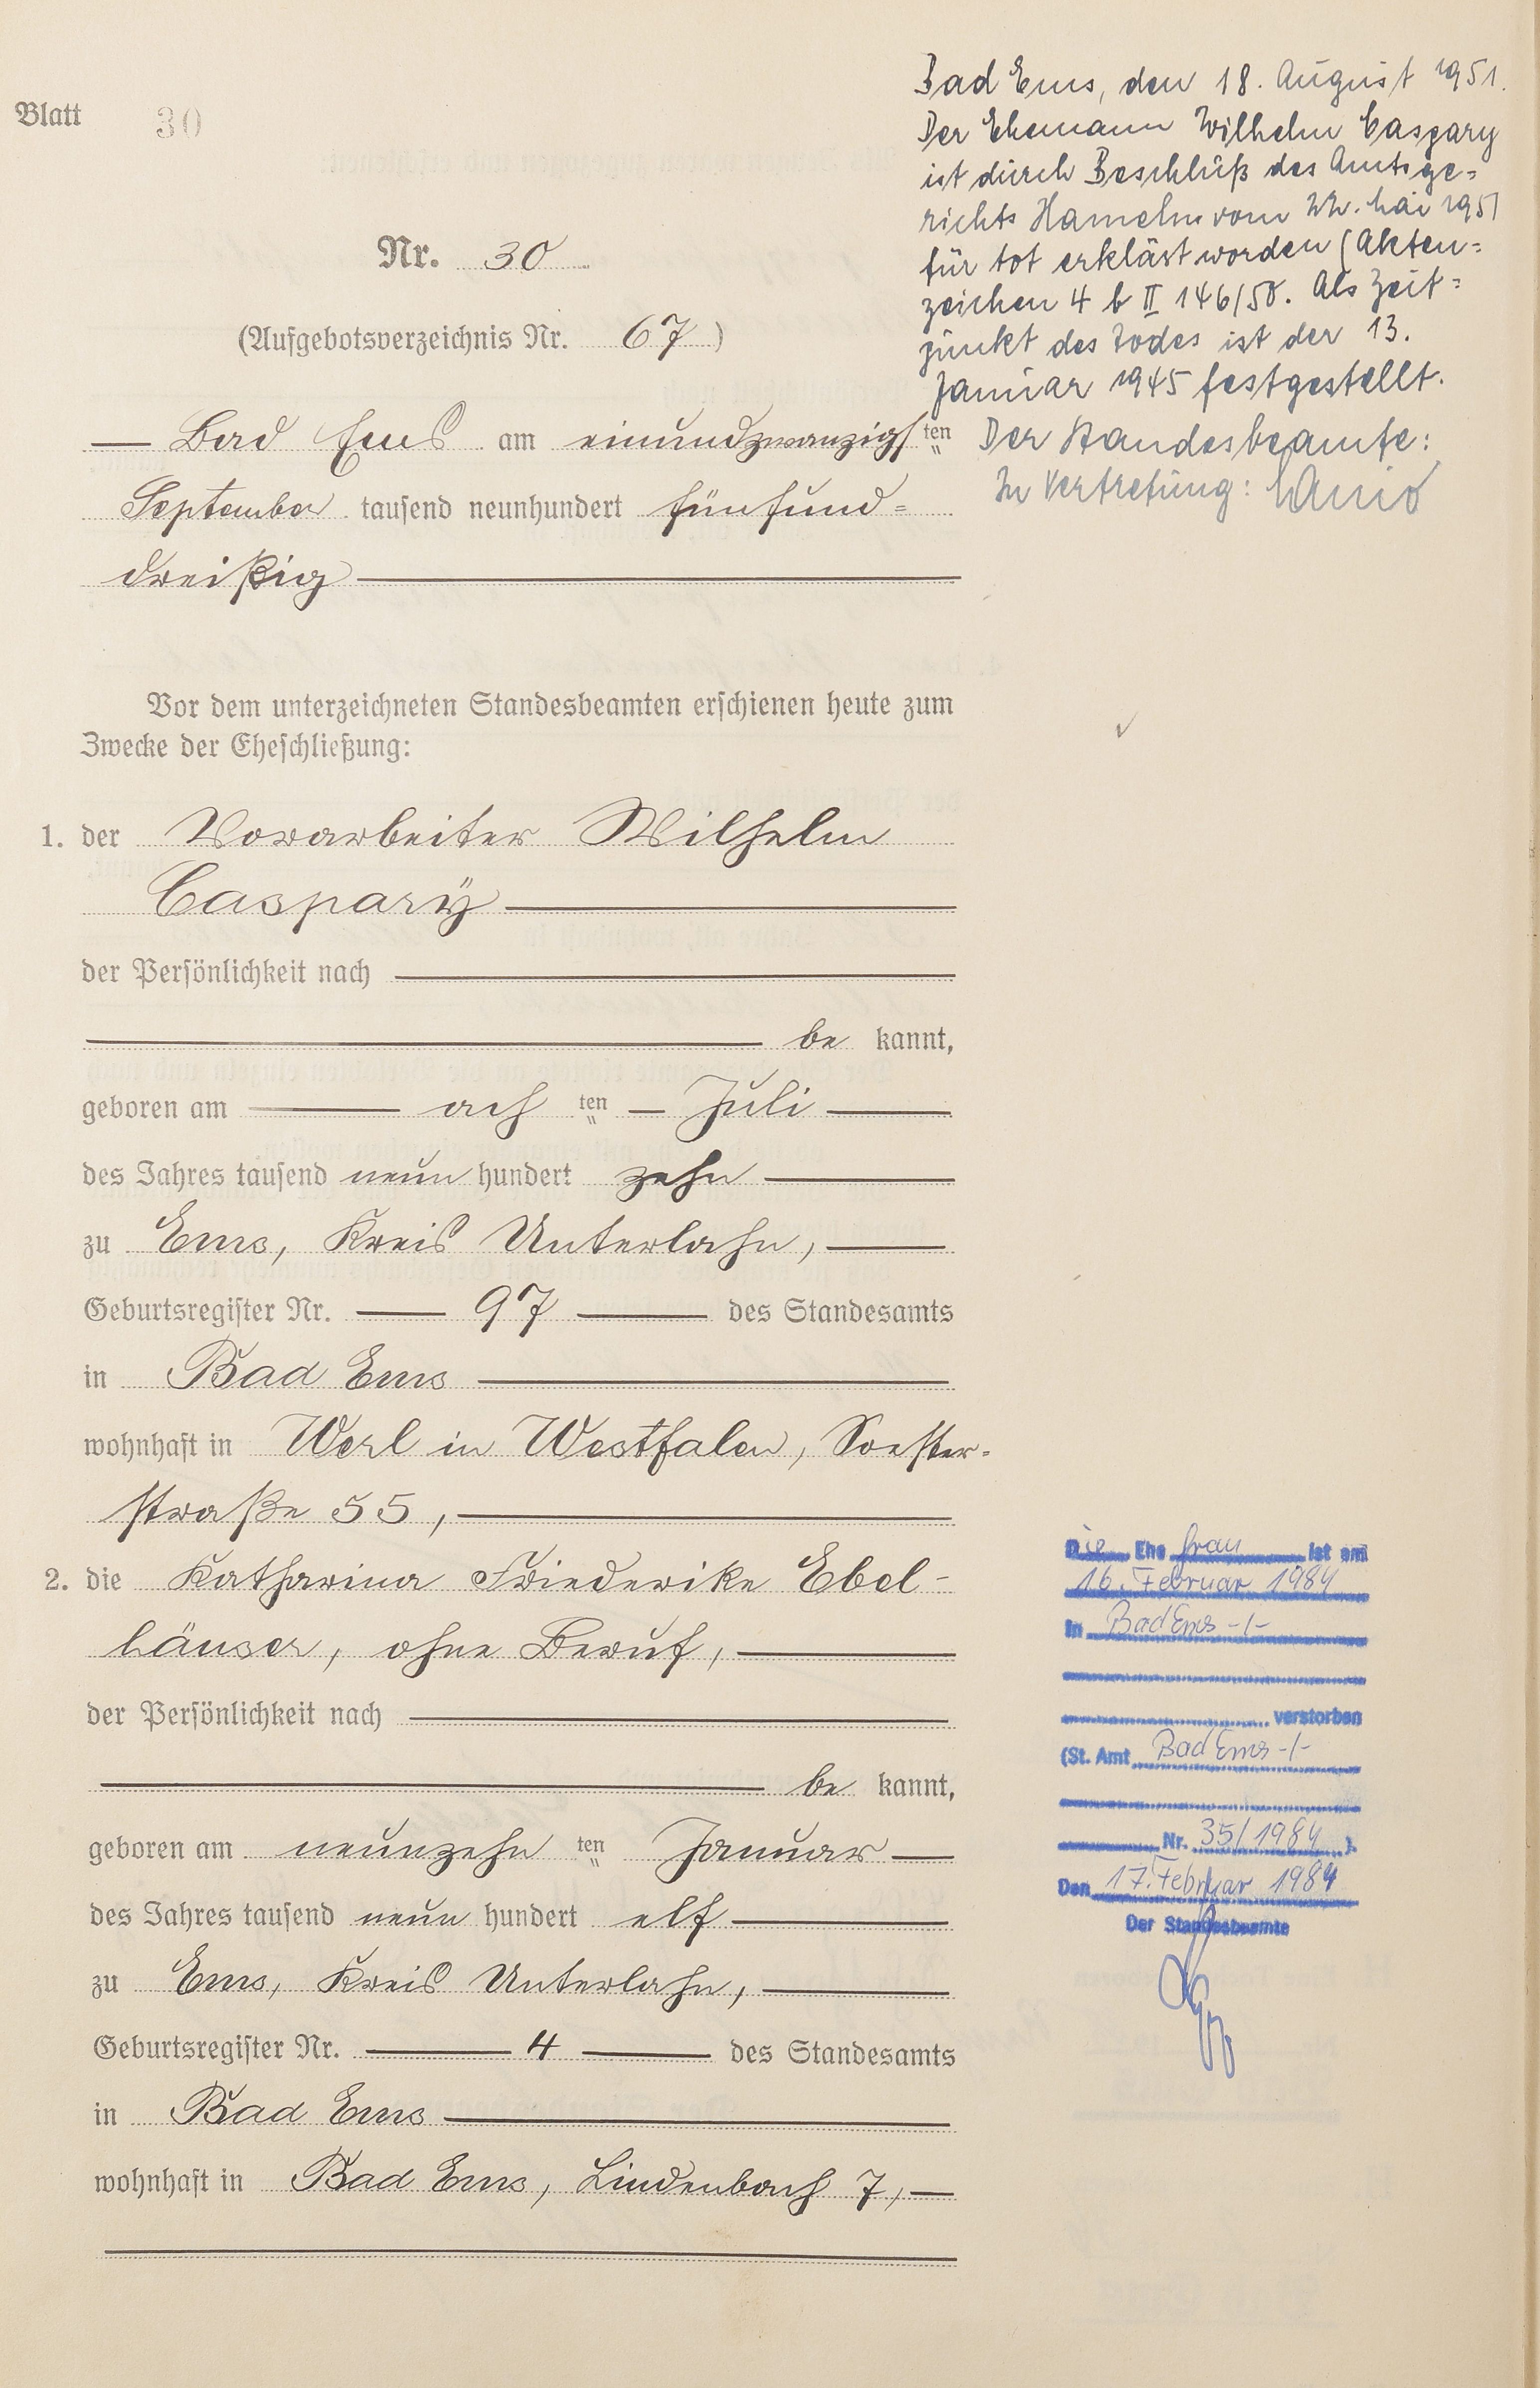 Blatt 30
Nr. 30
(Aufgebotsverzeichnis Nr. 67)
Bad Ems am einundzwanzigsten
September tausend neunhundert fünfund=
dreißig
Vor dem unterzeichneten Standesbeamten erschienen heute zum
Zwecke der Eheschließung:
1. der Vorarbeiter Wilhelm
Caspary
der Persönlichkeit nach
be kannt,
geboren am ach ten Juli
des Jahres tausend neun hundert zehn
zu Ems, Kreis Unterlahn,
Geburtsregister Nr. 97 des Standesamts
in Bad Ems
wohnhaft in Werl in Westfalen, Soester-
straße 55,
2. die Katharina Friederike Ebel-
häuser, ohne Beruf,
der Persönlichkeit nach
be kannt,
geboren am neunzehn ten Januar
des Jahres tausend neun hundert elf
zu Ems, Kreis Unterlahn,
Geburtsregister Nr. 4 des Standesamts
in Bad Ems
wohnhaft in Bad Ems, Lindenbach 7,
Bad Ems, den 18. August 1951.
Der Ehemann Wilhelm Caspary
ist durch Beschluß des Amtsge=
richts Hameln vom 22. Mai 1951
für tot erklärt worden (Akten=
zeichen 4 b II 146/50. Als Zeit=
punkt des Todes ist der 13.
Januar 1945 festgestellt.
Der Standesbeamte:
In Vertretung:
Die Ehe frau ist am
16. Februar 1984
in Bad Ems -/-
verstorben
(St. Amt Bad Ems -/-
Nr. 35/1984 ).
Den 17. Februar 1984
Der Standesbeamte